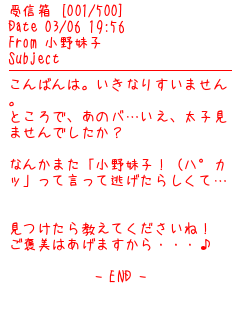 受信箱 [001/500]
Date 03/06 19:56
From 小野妹子
Subject
こんばんは。いきなりすいません
。
ところで、あのバ…いえ、太子見
ませんでしたか？
なんかまた「小野妹子！（ハ゜カ
ッ」って言って逃げたらしくて…
見つけたら教えてくださいね！
ご褒美はあげますから・・・♪
- END -